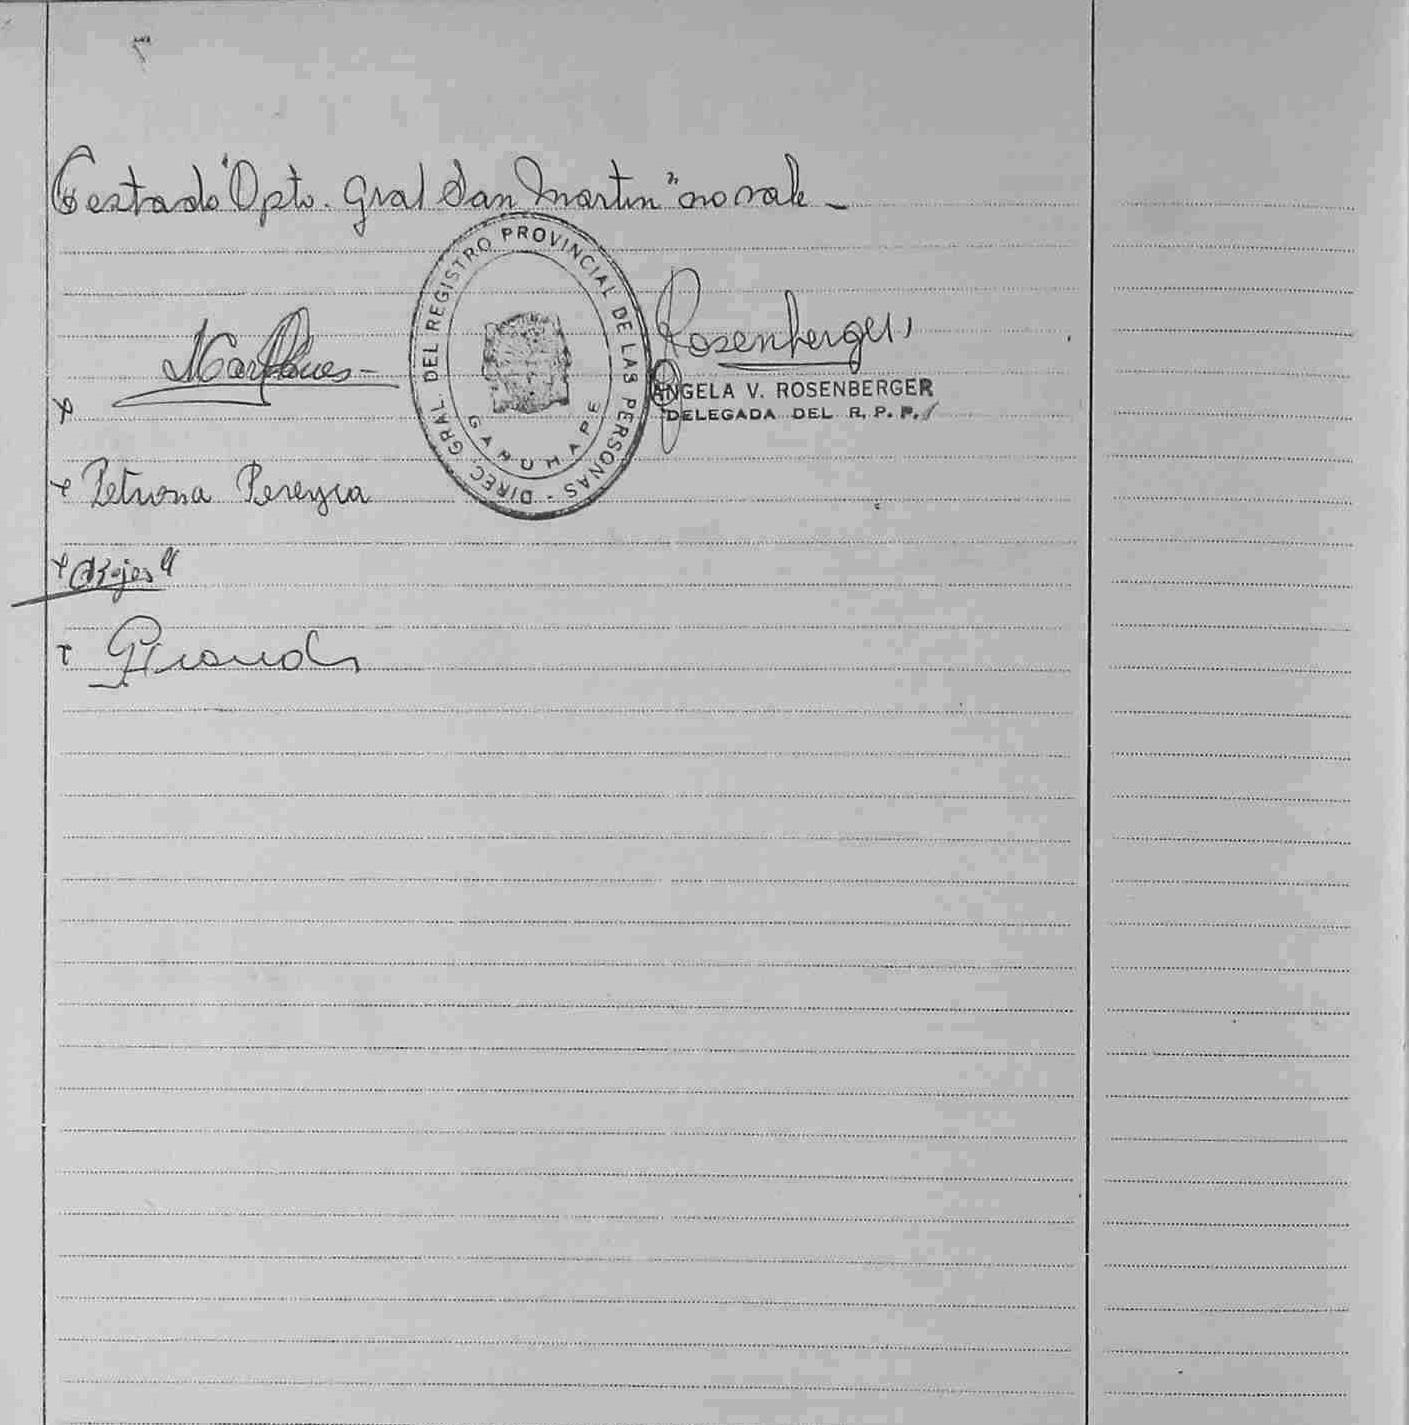 Testado "Dpto. Gral San Martin" no vale -
DIREC. GRAL. DEL REGISTRO PROVINCIAL DE LAS PERSONAS -
GARUHAPE
Rosenberger
ANGELA V. ROSENBERGER
DELEGADA DEL R. P. P.
x
x Petrona Pereyra
x